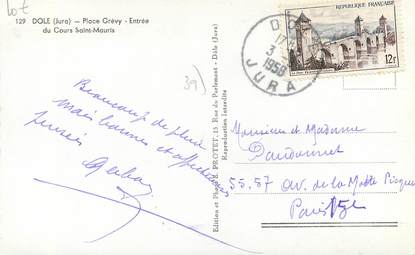 lot
129 DOLE (Jura) — Place Grévy - Entrée
du Cours Saint-Mauris
39)
Beaucoup de pluie
mais bonnes et affectueuses
pensées
Edition et Photo E. PROTET, 15, Rue du Parlement - Dôle (Jura)
Reproduction Interdite
DOLE
17
3
1958
JURA
REPUBLIQUE FRANÇAISE
12F
Monsieur et Madame
55.57 av. de la Motte Picquet
Paris 15e